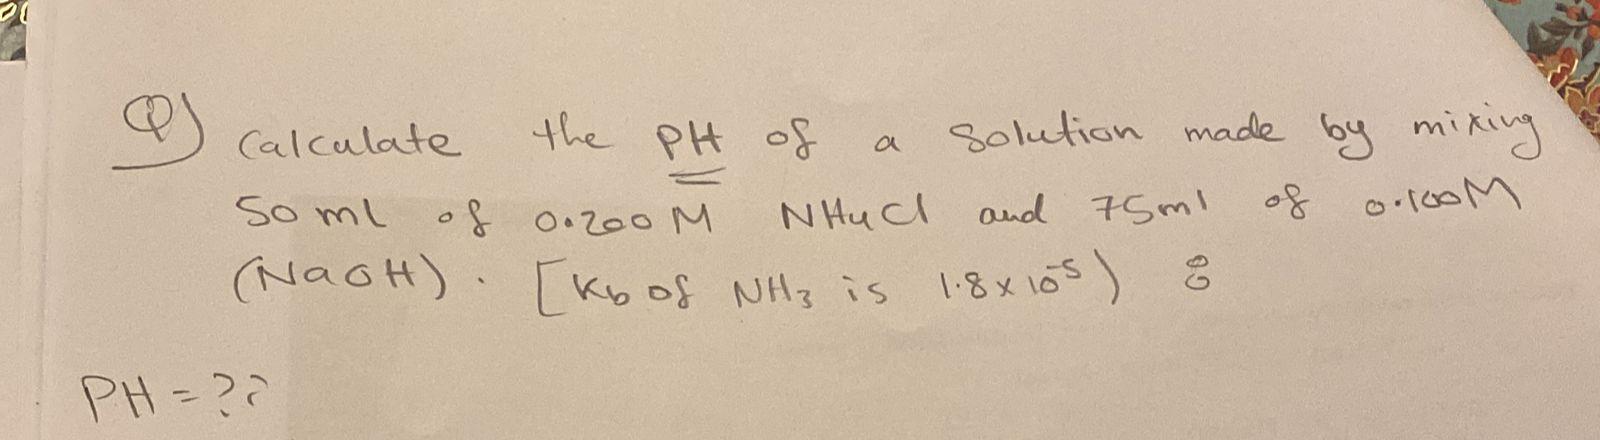 Q) Calculate the PH of a solution made by mixing
50 ml of 0.200 M NH4Cl and 75ml of 0.100M
(NaOH). [Kb of NH3 is 1.8x10-5) :
PH = ??